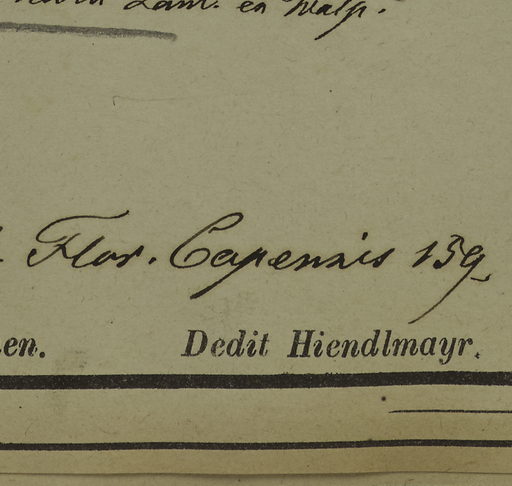 Lam. en Walp.
Flor. Capensis 159
en. Dedit Hiendlmayr.